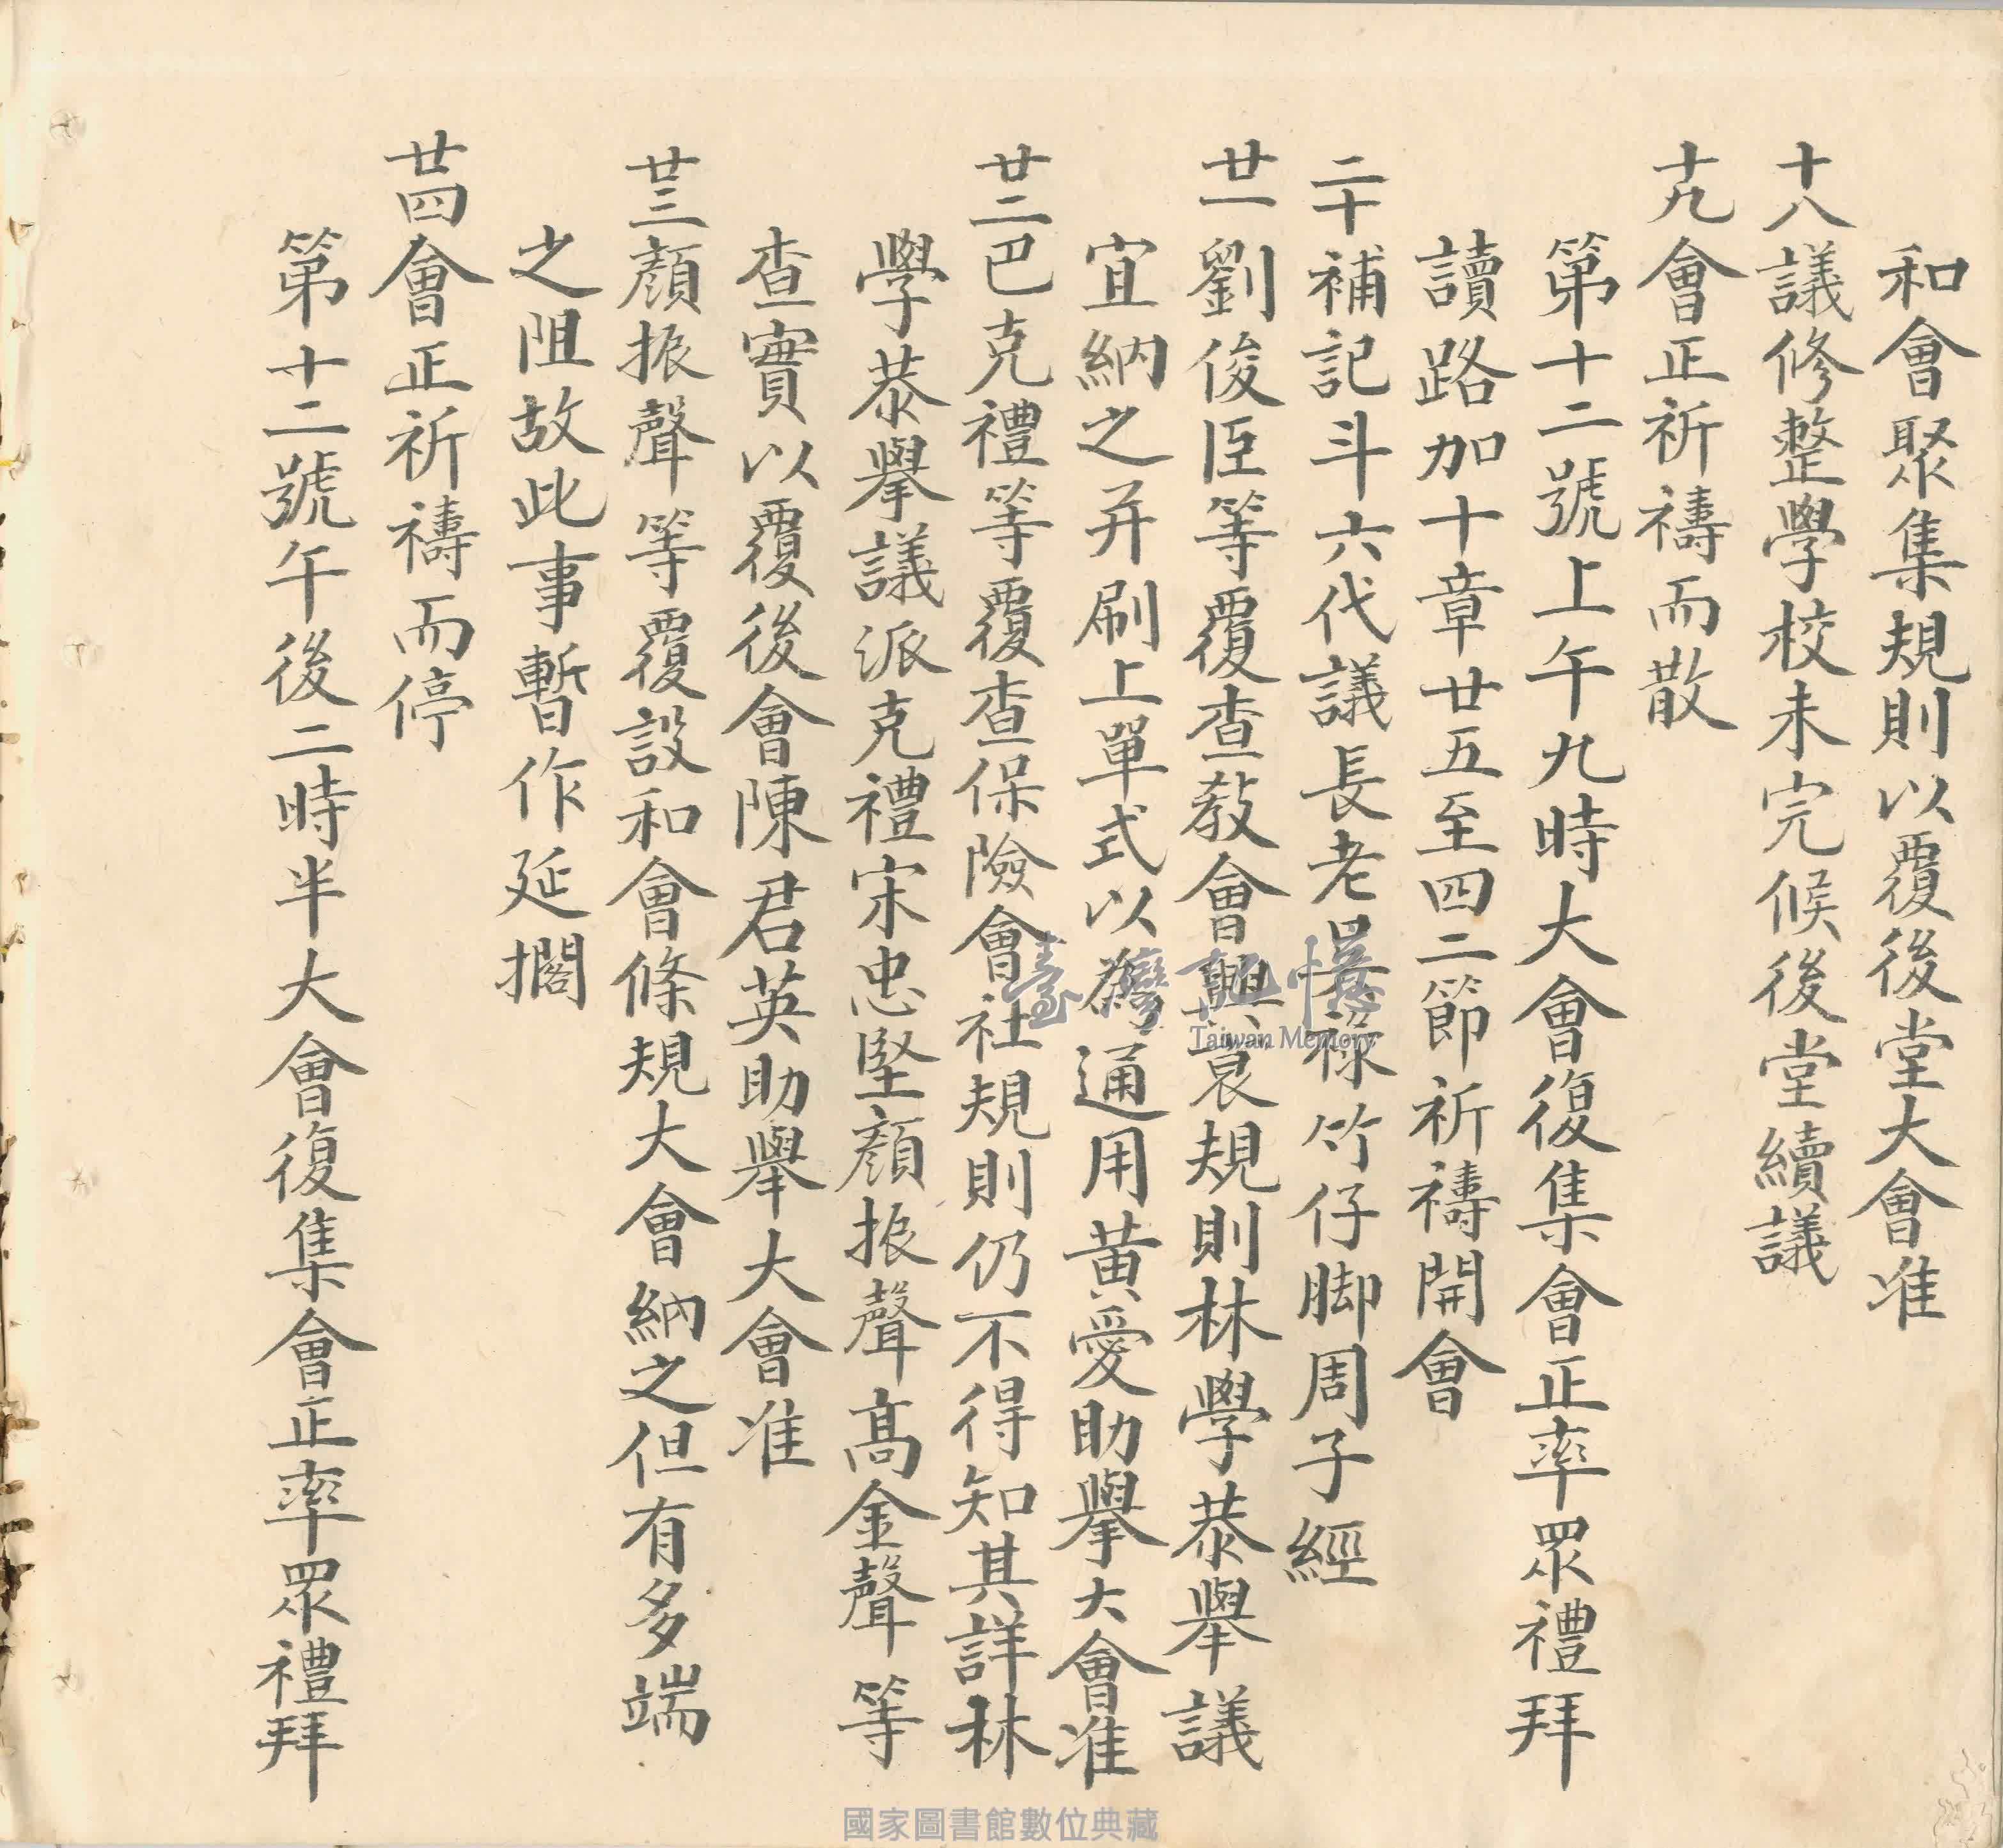 和會聚集規則以覆後堂大會准
十八議修整學校未完候後堂續議
十九會正祈禱而散
第十二號上午九時大會復集會正率眾禮拜
讀路加十章廿五至四二節祈禱開會
二十補記斗六代議長老祿竹仔脚周子經
廿一劉俊臣等覆查教會興衰規則林學恭舉議
宜納之并刷上單式以為通用黃愛助舉大會准
廿二巴克禮等覆查保險會社規則仍不得知其詳林
學恭舉議派克禮宋忠堅顏振聲高金聲等
查實以覆後會陳君英助舉大會准
廿三顏振聲等覆設和會條規大會納之但有多端
之阻故此事暫作延擱
廿四會正祈禱而停
第十二號午後二時半大會復集會正率眾禮拜
臺灣記憶
Taiwan Memory
國家圖書館數位典藏